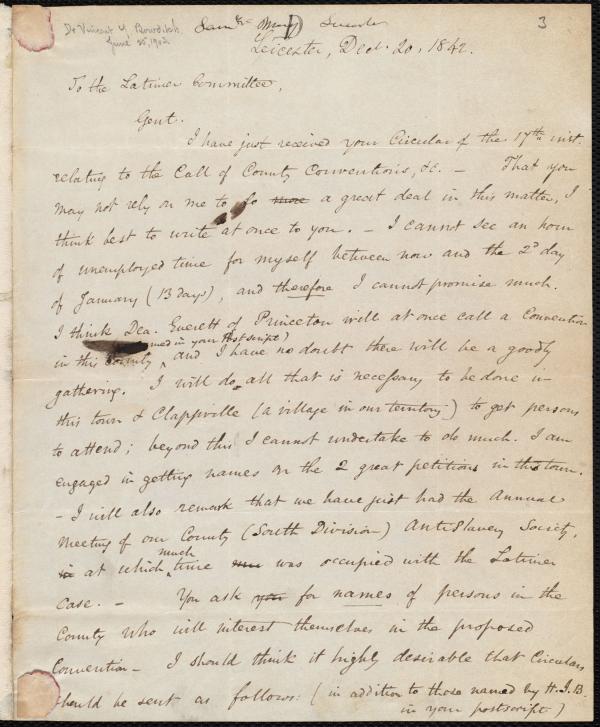 Dr Vincent Y. Bowditch
June 25, 1902
Saml. May D
3
Leicester, Dec. 20, 1842.
To the Latimer Committee,
Gent.
I have just received your Circular of the 17th inst.
relating to the Call of County Conventions, &c. — That you
may not rely on me to do more a great deal in this matter, I
think best to write at once to you. — I cannot see an hour
of unemployed time for myself between now and the 2d day
of January (13 days), and therefore I cannot promise much.
I think Dea. Everett of Princeton will at once call a Convention
named in your Postscript)
in this County, and I have no doubt there will be a goodly
gathering. I will do all that is necessary to be done in
this town & Clappville (a village in our territory) to get persons
to attend; beyond this I cannot undertake to do much. I am
engaged in getting names on the 2 great petitions in this town.
— I will also remark that we have just had the Annual
Meeting of our County (South Division) AntiSlavery Society,
much
at which time was occupied with the Latimer
case. — You ask for names of persons in the
County who will interest themselves in the proposed
Convention — I should think it highly desirable that Circulars
should be sent as follows: (in addition to those named by H.I.B.
in your postscript)